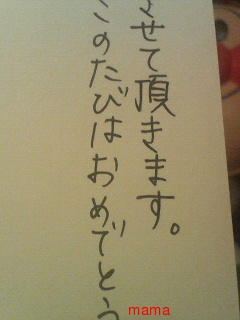 させて頂きます。
このたびはおめでとう
mama